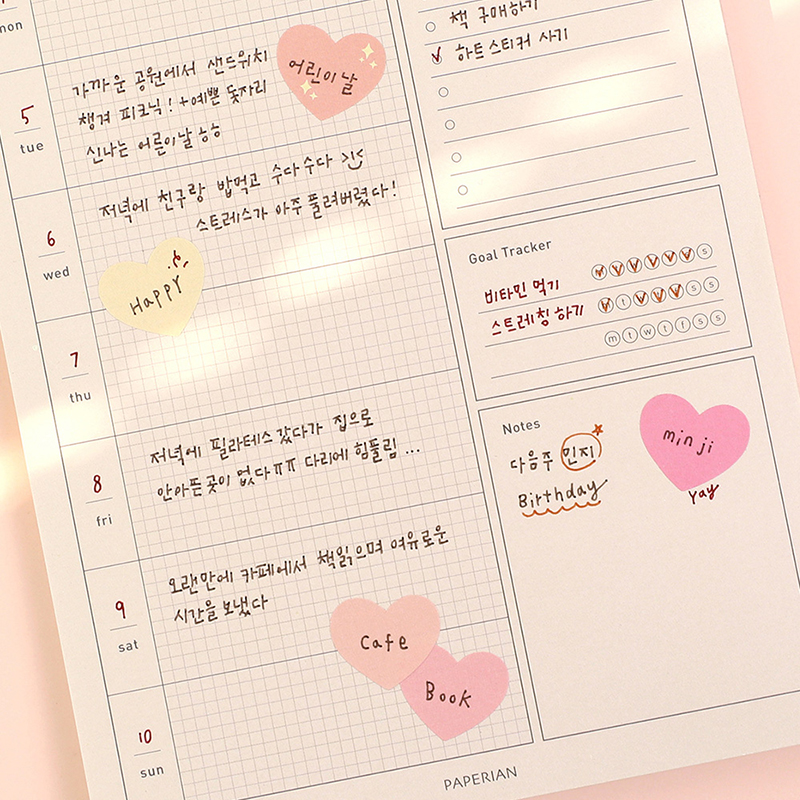 mon
5
tue
가까운 공원에서 샌드위치
챙겨 피크닉! + 예쁜 돗자리
신나는 어른이날 ㅎㅎ
어린이날
6
wed
저녁에 친구랑 밥먹고 수다수다 >ㅣ<
스트레스가 아주 풀려버렸다!
Happy
7
thu
8
fri
저녁에 필라테스 갔다가 집으로
안아픈곳이 없다ㅠㅠ 다리에 힘풀림...
9
sat
오랜만에 카페에서 책읽으며 여유로운
시간을 보냈다
Cafe
Book
10
sun
책 구매하기
하트스티커 사기
Goal Tracker
비타민 먹기 s
스트레칭하기 t s s
m t w t f s s
Notes
다음주 민지
Birthday
min ji
yay
PAPERIAN